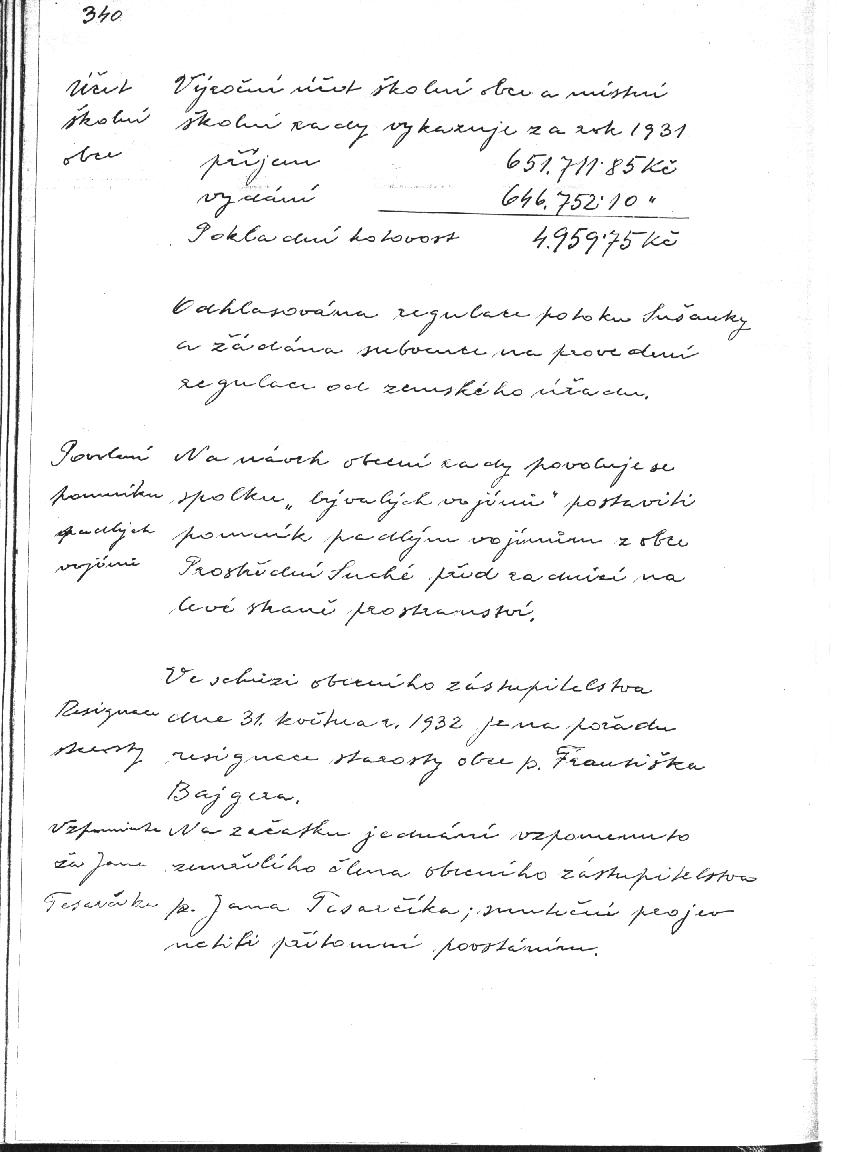 340
Účet
školní
obce
Výroční účet školní obce a místní
školní rady vykazuje za rok 1931
příjem 651.711·85 Kč
vydání 646.752·10 "
Pokladní hotovost 4.959·75 Kč
Odhlasována regulace potoku Sušanky
a žádána subvence na provedení
regulace od zemského úřadu.
Povolení
pomníku
padlých
vojínů
Na návrh obecní rady povoluje se
spolku „bývalých vojínů" postaviti
pomník padlým vojínům z obce
Prostřední Suché před radnicí na
levé straně prostranství.
Ve schůzi obecního zástupitelstva
Resignace
starosty
dne 31. května r. 1932 je na pořadu
resignace starosty obce p. Františka
Bajgera.
Vzpomínka
za Jana
Tesarčíka
Na začátku jednání vzpomenuto
zemřelého člena obecního zástupitelstva
p. Jana Tesarčíka; smuteční projev
uctili přítomní povstáním.